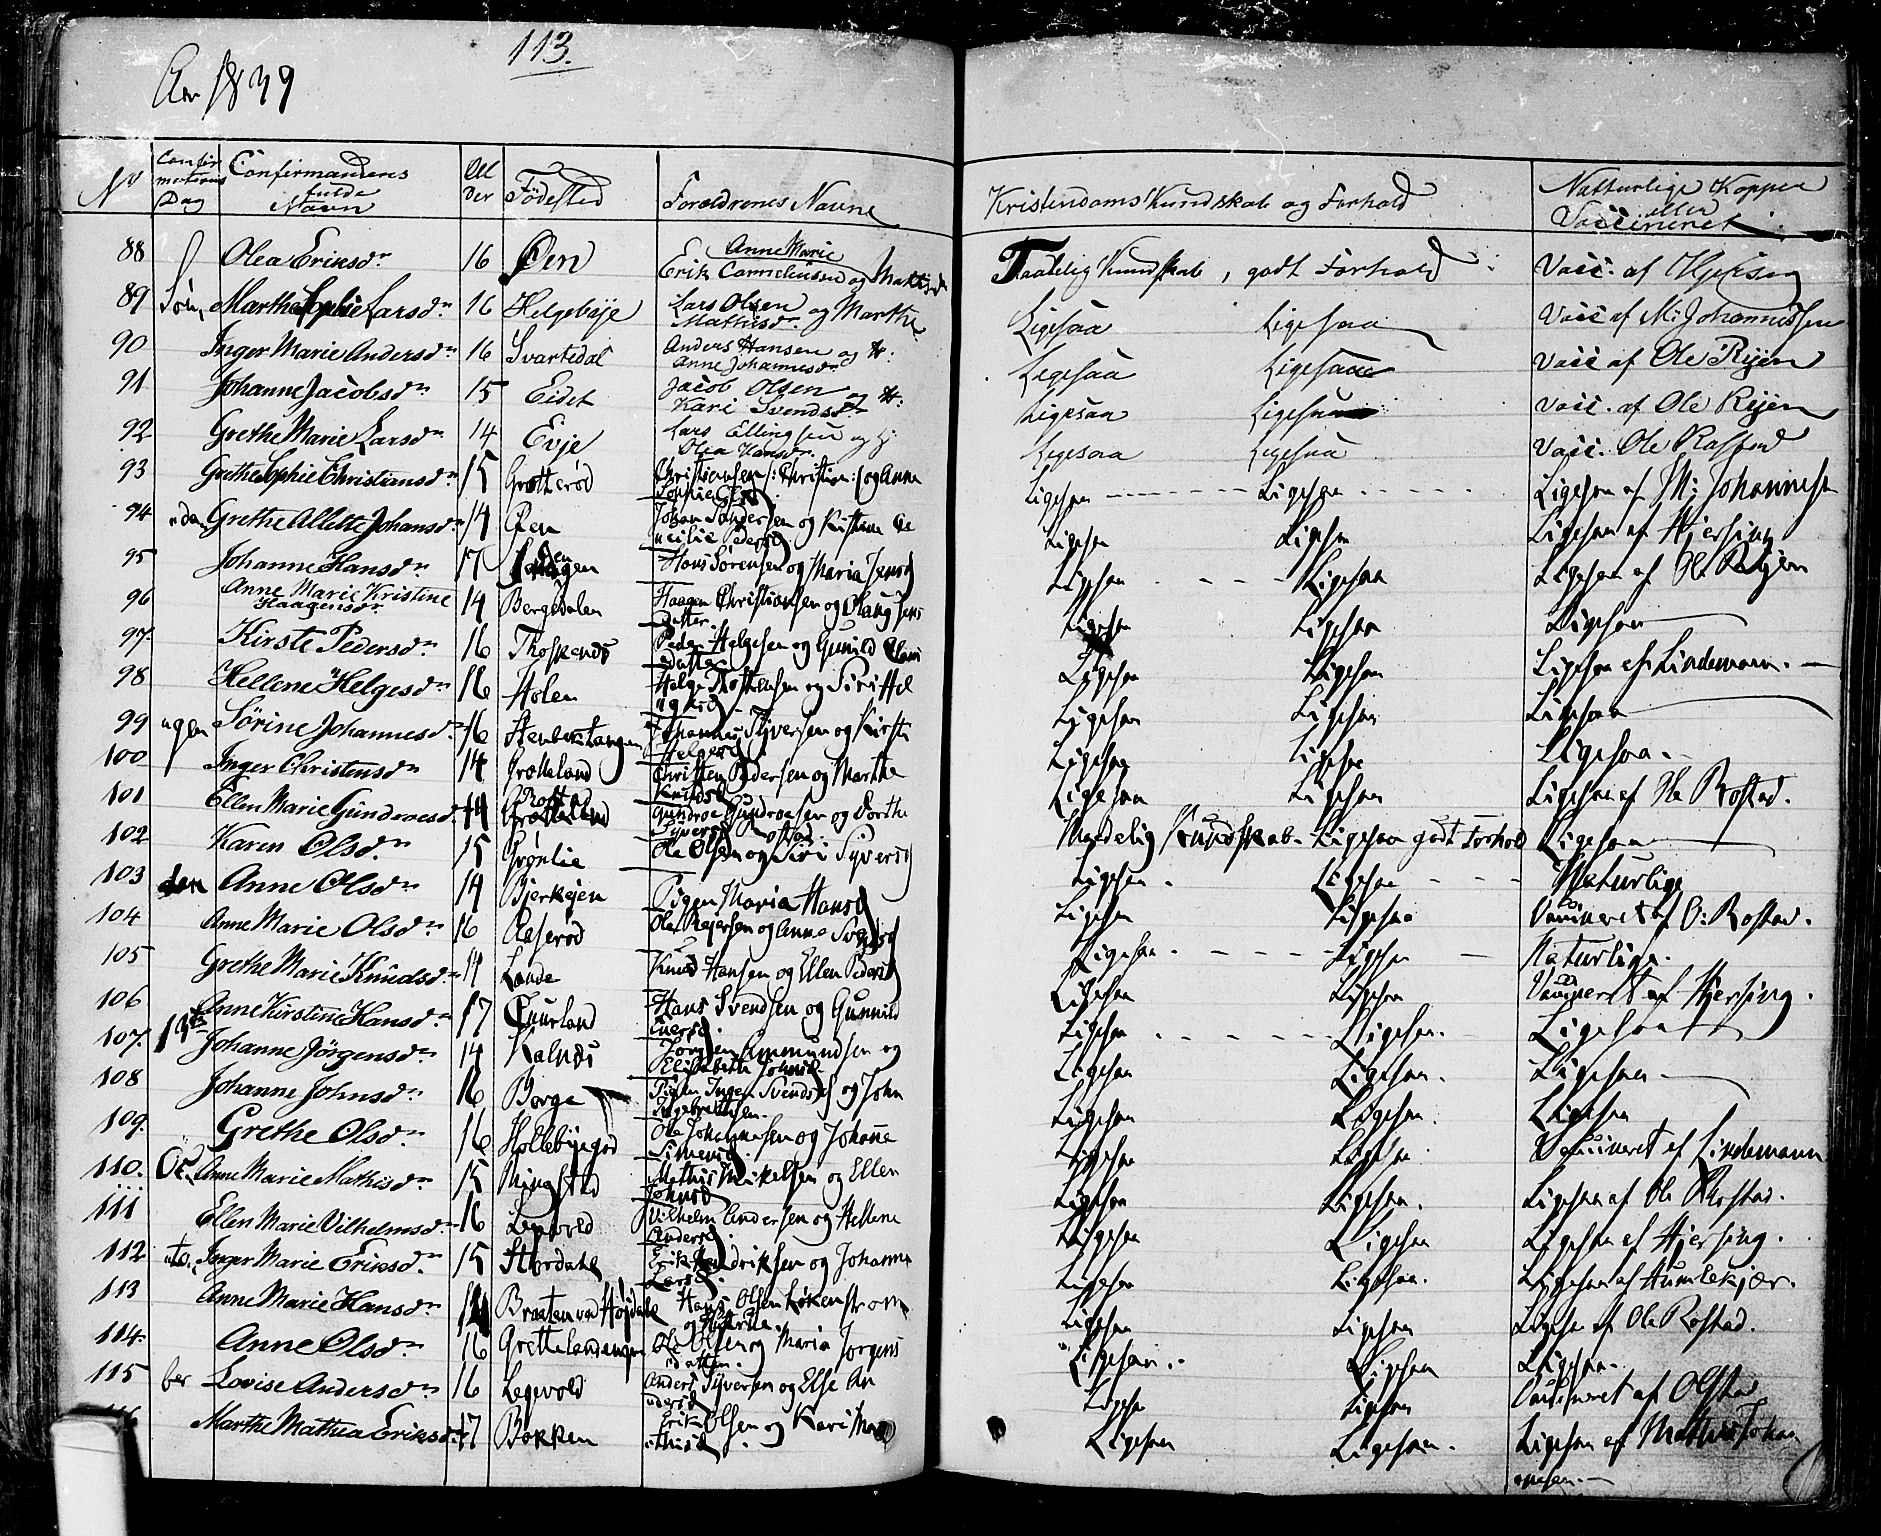 113.
Aar 1839
No Confirmations Dag Confirmandens fulde Navn Alder Födested Foreldrenes Navne Kristendoms Kundskab og Forhold Naturlige Kopper eller Vaccineret
88 Olea Eriksdr 16 Öen Erik Corneliussen og Anne Marie Mathisdr Taalelig Kundskab, godt Forhold Vacc. af Hjersing
89 Søn Marthe Sophie Larsdr 16 Helgebye Lars Olsen og Marthe Mathisdr Ligesaa Ligesaa Vacc af M: Johannissen
90 Inger Marie Andersdr 16 Svartedal Anders Hansen og H: Anne Johannesdr Ligesaa Ligesaa Vacc af Ole Rijen
91 Johanne Jacobsdr 15 Eidet Jacob Olsen og H: Kari Svendsdr Ligesaa Ligesaa Vacc. af Ole Rijen
92 Grethe Marie Larsdr 14 Evje Lars Ellingsen og H: Olea Hansdr Ligesaa Ligesaa Vacc. Ole Rostad
93 Grethe Sophie Christiansdr 15 Grötteröd Christiansen /: Christian :/ og Anne Sophie Ligesaa Ligesaa Ligesaa af M: Johannesen
94 nden Grethe Allette Johansdr 14 Öen Johan Pedersen og Kistine Cecilie Pedersd Ligesaa Ligesaa Ligesaa af Hjersing
95 Johanne Hansdr 17 Hans Sörensen og Maria Jensd Ligesaa Ligesaa Ligesaa af Ole Rijen
96 Anne Marie Kristine Haagensdr 14 Bergsdalen Haagen Christiansen og Olaug Jensdatter. Ligesaa Ligesaa Ligesaa
97. Kirste Pedersdr 16 Thoskenæs Peder Helgesen og Gunild Olausdatter Ligesaa Ligesaa Ligesaa af Lindemann.
98 Hellene Helgesdr 16 Holen Helge Tostensen og Siri Helgesd Ligesaa Ligesaa Ligesaa
99 agen Sörine Johannesdr 16 Stenbektangen Johannes Syversen og Kirsti Helgesd Ligesaa Ligesaa Ligesaa.
100 Inger Christensdr 14 Grötteland Christen Pedersen og Marthe Knudsd Ligesaa Ligesaa Ligesaa af Ole Rostad.
101 Ellen Marie Gundroesdr 14 Rostad Gundroe Gundroesen og Dorthe Syversd Rostad. Maadelig Kundskab. Ligesaa godt Forhold Ligesaa
102 Karen Olsdr 15 Grönlie Ole Olsen og Siri Syversd Ligesaa. Ligesaa Naturlige
103 den Anne Olsdr 14 Bjerkejen Pigen Maria Hansd Ligesaa Ligesaa Vaccineret af O: Rostad.
104 Anne Marie Olsdr 16 Ræseröd Ole Rejersen og Anne Svendsd Ligesaa. Ligesaa Naturlige.
105 Grethe Marie Knudsdr 14 Lande Knud Hansen og Ellen Pedersd Ligesaa Ligesaa Vaccineret af Hjersing.
106 Anne Kirstine Hansdr 17 Hans Svendsen og Gunnild Iversd. Ligesaa Ligesaa. Ligesaa
107. 13de Johanne Jörgensdr 14 Kalnæs Jörgen Ammundsen og Elisabeth Johnsd Ligesaa Ligesaa. Ligesaa
108 Johanne Johnsdr 16 Borge Pigen Inger Svendsd og John Ingebrethsen. Ligesaa Ligesaa. Ligesaa
109. Grethe Olsdr 16 Hollebyegod Ole Johannesen og Johanne Simensd. Ligesaa Ligesaa. Vaccineret af Lindemann
110. Oc Anne Marie Mathisdr 15 Ringstad Mathis Mikelsen og Ellen Johnsd Ligesaa Ligesaa. Ligesaa af Ole Rostad.
111 Ellen Marie Vilhelmsdr 16 Legvold Vilhelm Andersen og Hellene Andersd. Ligesaa Ligesaa Ligesaa af Hjersing.
112 Inger Marie Eriksdr 15 Stordahl Erik Hendriksen og Johanne Larsd. Ligesaa Ligesaa. Ligesaa af Humlekjær.
113 Anne Marie Hansdr Braten ved Højdahl Hans Olsen Lökenström og Marthe. Ligesaa Ligesaa Ligesaa af Ole Rostad.
114. Anne Olsdr 16 Grettelandengen Ole Olsen og Maria Jorgensdatter. Ligesaa. Ligesaa Ligesaa.
115 ber Lovise Andersdr 16 Legevold Anders Syversen og Else Andersd Ligesaa Ligesaa Vaccineret af Olstad
116 Marthe Mathea Eriksdr 17 Bakken Erik Olsen og Kari Mathisd. Ligesaa Ligesaa. Ligesaa af Mathis Johannesen.